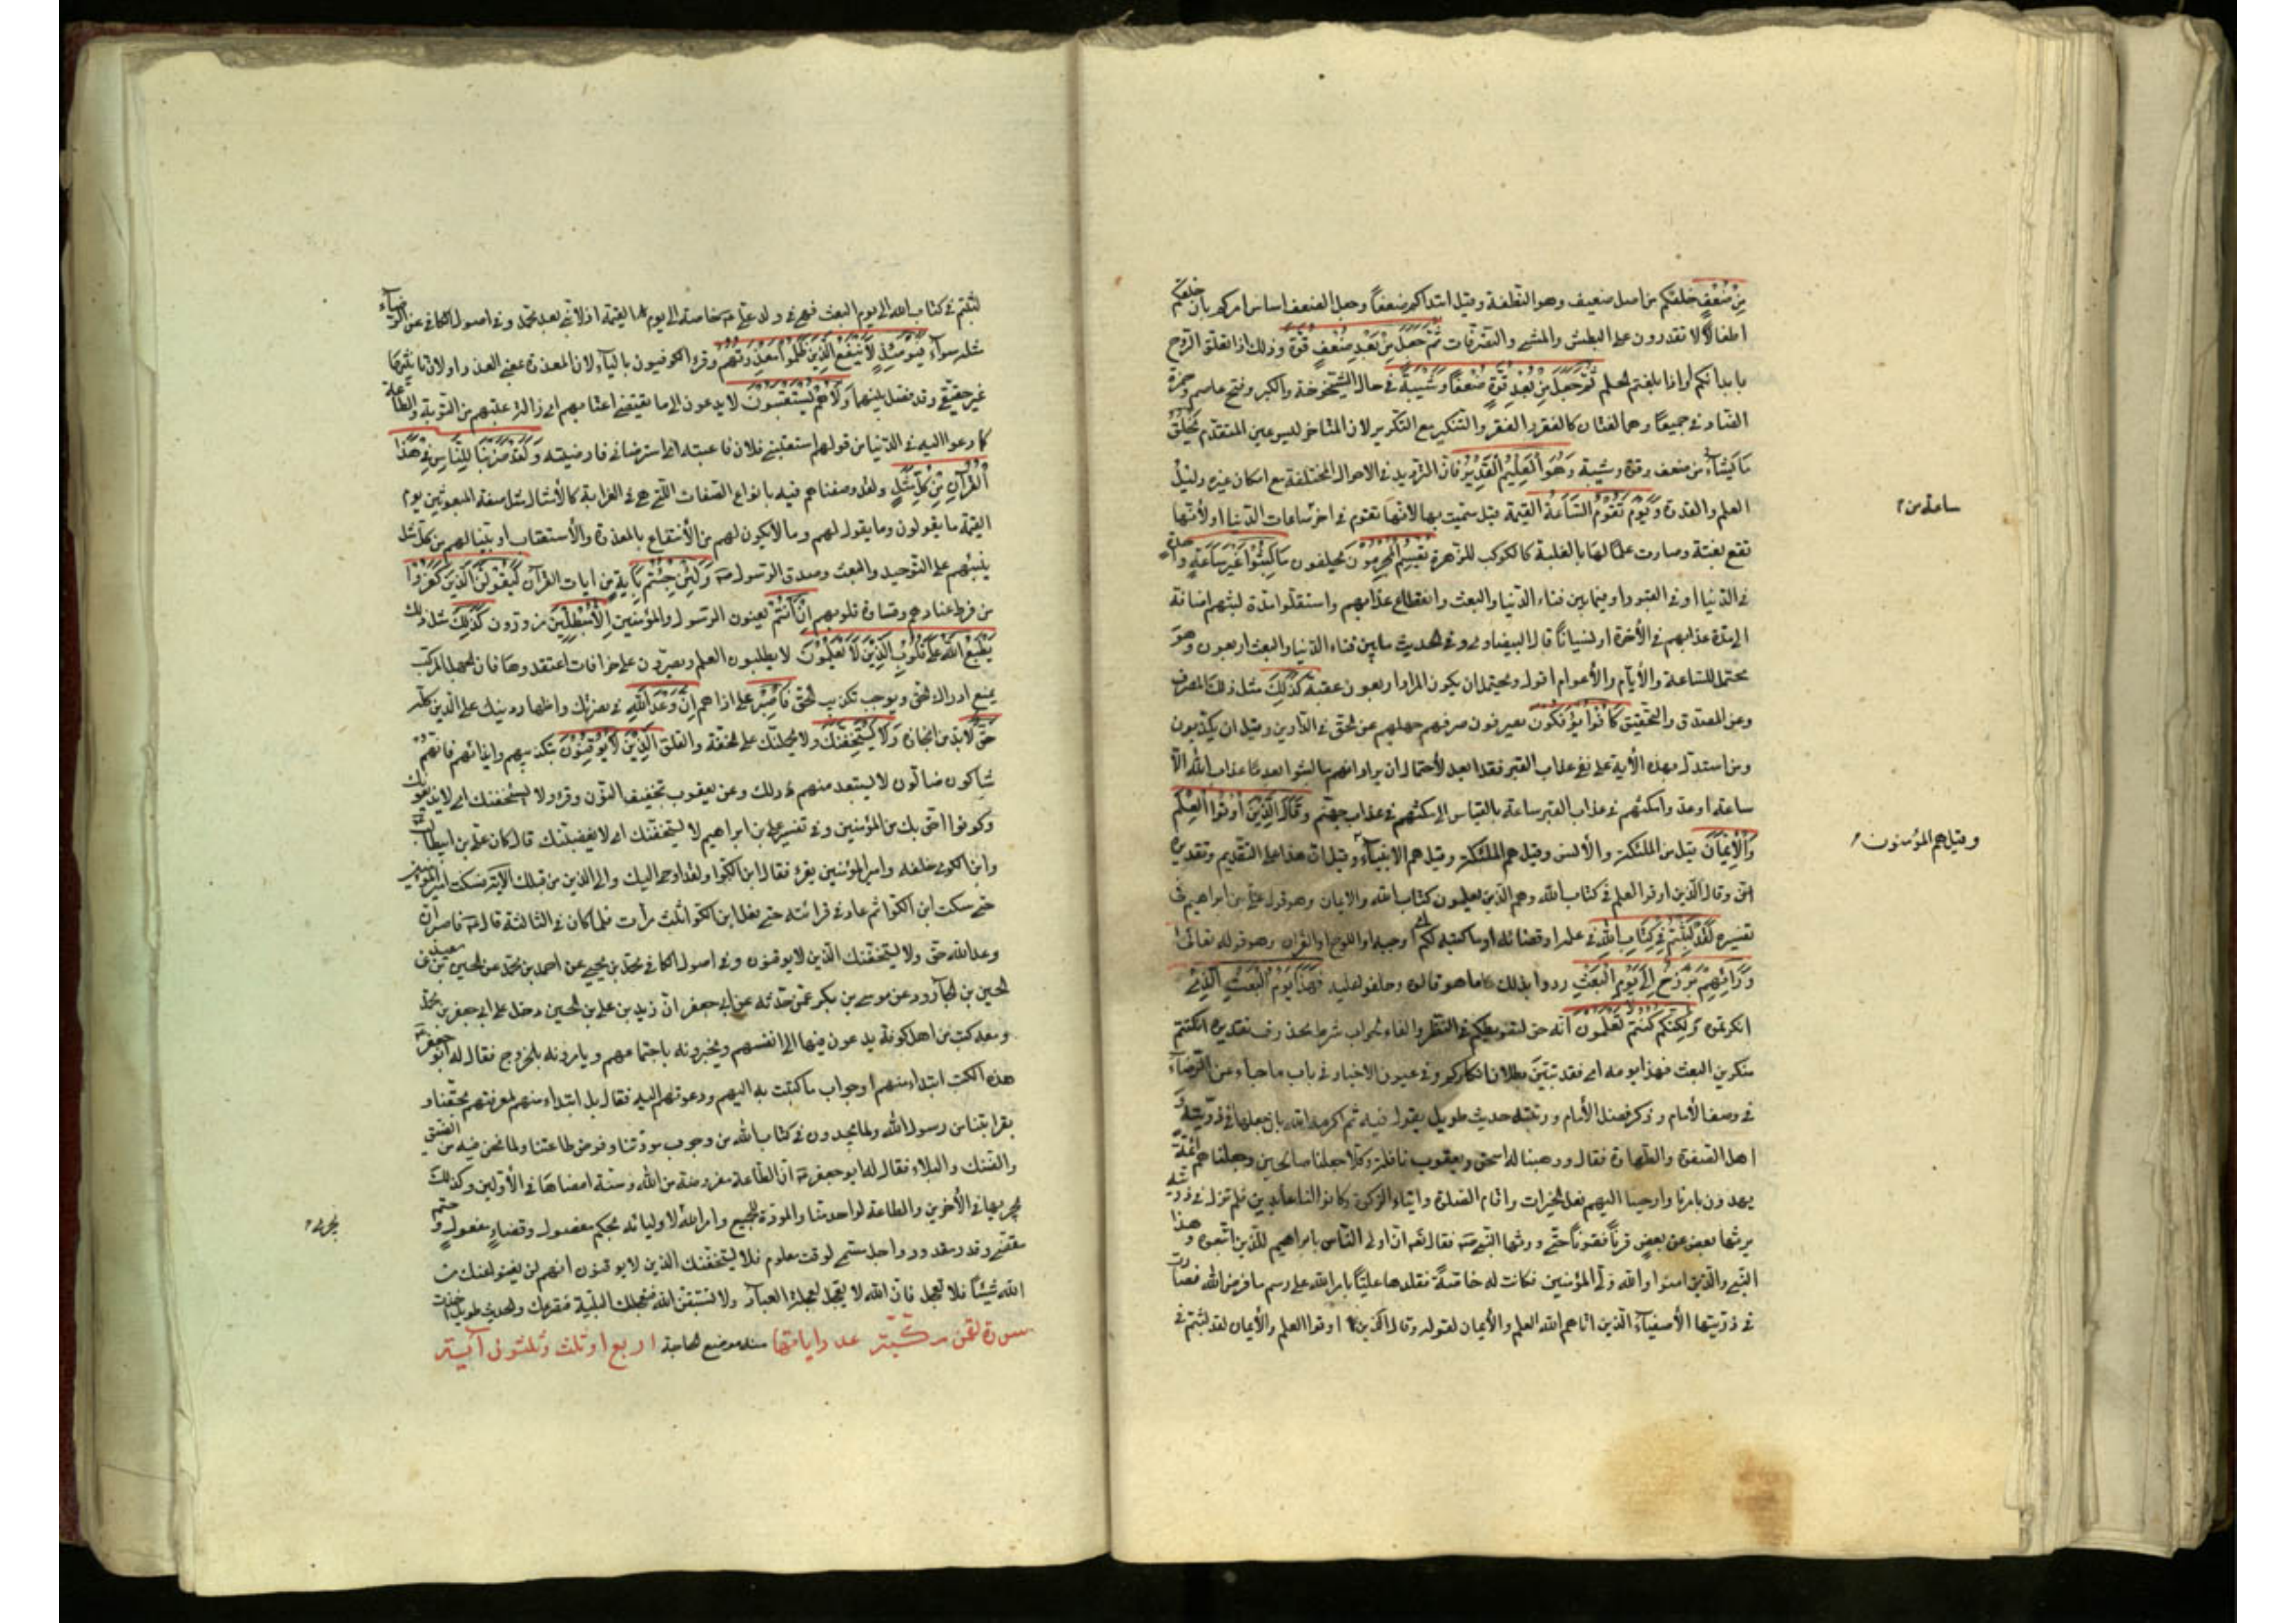 مِنْ ضَعْفٍ خلقكم من اصل ضعيف وهو النطفة وقيل ابتداكم ضعفاً وجعل الضعف اساس امركم بان خلقكم
اطفالا لا تقدرون على البطش والمشى والتصرفات ثُمَّ جَعَلَ مِنْ بَعْدِ ضَعْفٍ قُوَّةً وذلك اذا تعلق الروح
بابدانكم او اذا بلغتم الحلم ثُمَّ جَعَلَ مِنْ بَعْدِ قُوَّةٍ ضَعْفاً وَشَيْبَةً فى حال الشيخوخة والكبر وفتح عاصم وحمزة
الضاد فى جميعاً وهما لغتان كالفقر والفقر والتنكير مع التكرير لان المتاخر ليس عين المتقدم يَخْلُقُ
مَا يَشَاءُ من ضعف وقوة وشيبة وَهُوَ الْعَلِيمُ الْقَدِيرُ فان الترديد فى الاحوال المختلفة مع امكان غيره دليل
العلم والقدرة وَيَوْمَ تَقُومُ السَّاعَةُ القيمة قيل سميت بها لانها تقوم فى اخر ساعات الدنيا او لأنها
تقع بغتة وصارت علماً لها بالغلبة كالكوكب للزهرة يُقْسِمُ الْمُجْرِمُونَ يحلفون مَا لَبِثُوا غَيْرَ سَاعَةٍ واحدة
فى الدنيا او فى القبور او فيما بين فناء الدنيا والبعث وانقطاع عذابهم واستقلوا مدة لبثهم اضافة
الى مدة عذابهم فى الأخرة او نسياناً قال البيضاوى وفى الحديث ما بين فناء الدنيا والبعث اربعون وهو
محتمل للساعة والأيام والأعوام اقول ويحتمل ان يكون المراد اربعون عقبة كَذَلِكَ مثل ذلك الصرف
وعن الصدق والتحقيق كَانُوا يُؤْفَكُونَ يصرفون صرفهم جهلهم عن الحق فى الدارين وقيل ان يكذبون
ومن استدل بهذه الأية على نفى عذاب القبر فقد ابعد لأحتمال ان يراد انهم ما لبثوا بعد عذاب الله الا
ساعة او عدوا مكثهم فى عذاب القبر ساعة بالقياس الى مكثهم فى عذاب جهنم وَقَالَ الَّذِينَ أُوتُوا الْعِلْمَ
وَالْإِيمَانَ قيل من الملئكة والأنس وقيل هم الملئكة وقيل هم الانبياء وقيل ان هذا على التقديم وتقديره
وقال الذين اوتوا العلم فى كتاب الله وهم الذين يعلمون كتاب الله والايمان وهو قول على بن ابراهيم فى
تفسيره لَقَدْ لَبِثْتُمْ فِي كِتَابِ اللَّهِ فى علمه او قضائه او ما كتبه لكم اى اوجبه او اللوح او القران وهو قوله تعالى
وَرَائِهِمْ بَرْزَخٌ إِلَى يَوْمِ الْبَعْثِ ردوا بذلك ما هو قالوه وحلفوا عليه فَهَذَا يَوْمُ الْبَعْثِ الذى
انكرتموه وَلَكِنَّكُمْ كُنْتُمْ لَا تَعْلَمُونَ انه حق لتفريطكم فى النظر والفاء لجواب شرط محذوف تقديره ان كنتم
منكرين البعث فهذا يومه اى فقد تبين بطلان انكاركم وفى عيون الاخبار فى باب ما جاء عن الرضا
فى وصف الأمام وذكر فضل الأمام ورتبته حديث طويل يقول فيه ثم اكرمه الله بان جعلها فى ذريته
اهل الصفوة والطهارة فقال ووهبنا له اسحق ويعقوب نافلة وكلا جعلنا صالحين وجعلناهم ائمة
يهدون بامرنا واوحينا اليهم فعل الخيرات واقام الصلوة وايتاء الزكوة وكانوا لنا عابدين فلم تزل فى ذريته
يرثها بعض عن بعض قرناً فقرناً حتى ورثها النبى فقال الله ان اولى الناس بابراهيم للذين اتبعوه وهذا
النبى والذين امنوا والله ولى المؤمنين فكانت له خاصةً فقلدها علياً بامر الله على رسم ما فرض الله فصارت
فى ذريتها الأصفياء الذين اتاهم الله العلم والأيمان لقوله وقال الذين اوتوا العلم والأيمان لقد لبثتم فى
ساعة من
وقيل هم المؤمنون
لبثتم فى كتاب الله الى يوم البعث فهى فى ولد على خاصة الى يوم القيمة اذ لا نبى بعد محمد وفى اصول الكافى عن الرضا
مثله سواء فَيَوْمَئِذٍ لَا يَنْفَعُ الَّذِينَ ظَلَمُوا مَعْذِرَتُهُمْ وقرء الكوفيون بالياء لان المعذرة بمعنى العذر او لان تانيثها
غير حقيقى وقد فصل بينهما وَلَا هُمْ يُسْتَعْتَبُونَ لا يدعون الى ما يقتضى اعتابهم اى ازالة عتبهم من التوبة والطاعة
كما دعوا اليه فى الدنيا من قولهم استعتبنى فلان فاعتبته اى استرضانى فارضيته وَلَقَدْ ضَرَبْنَا لِلنَّاسِ فِي هَذَا
الْقُرْآنِ مِنْ كُلِّ مَثَلٍ ولقد وصفناهم فيه بانواع الصفات التى هى فى الغرابة كالأمثال مثل صفة المبعوثين يوم
القيمة ما يقولون وما يقول لهم وما لا يكون لهم من الأنتفاع بالمعذرة والأستعتاب او بينا لهم من كل مثل
ينبئهم على التوحيد والبعث وصدق الرسول وَلَئِنْ جِئْتَهُمْ بِآيَةٍ من ايات القرآن لَيَقُولَنَّ الَّذِينَ كَفَرُوا
من فرط عنادهم وقساوة قلوبهم إِنْ أَنْتُمْ يعنون الرسول والمؤمنين إِلَّا مُبْطِلُونَ مزورون كَذَلِكَ مثل ذلك
يَطْبَعُ اللَّهُ عَلَى قُلُوبِ الَّذِينَ لَا يَعْلَمُونَ لا يطلبون العلم ويصرون على خرافات اعتقدوها فان الجهل المركب
يمنع ادراك الحق ويوجب تكذيب المحق فَاصْبِرْ على اذاهم إِنَّ وَعْدَ اللَّهِ فى نصرتك واظهار دينك على الدين كله
حَقٌّ لابد من انجازه وَلَا يَسْتَخِفَّنَّكَ ولا يحملنك على الخفة والقلق الَّذِينَ لَا يُوقِنُونَ بتكذيبهم وايذائهم فانهم
شاكون ضالون لا يستبعد منهم ذلك وعن يعقوب تخفيف النون وقرء ولا يستحقنك اى لا يذيغوك
وكونوا احق بك من المؤمنين وفى تفسير على بن ابراهيم لا يستخفنك اى لا يغضبنك قال كان على بن ابيطالب
وابن الكوى خلفه وامير المؤمنين يقرء فقال ابن الكوا ولقد اوحى اليك والى الذين من قبلك الآية فسكت امير المؤمنين
حتى سكت ابن الكوا ثم عاد فى قرائته حتى فعل ابن الكوا ثلث مرات فلما كان فى الثالثة قال فاصبر ان
وعد الله حق ولا يستخفنك الذين لا يوقنون وفى اصول الكافى محمد بن يحيى عن احمد بن محمد عن الحسين بن سعيد عن
الحسين بن الجارود عن موسى بن بكر عمن حدثه عن ابى جعفر ان زيد بن على بن الحسين دخل على ابى جعفر بن محمد
ومعه كتب من اهل كوفة يدعون فيها الى انفسهم ويخبرونه باجتماعهم ويامرونه بالخروج فقال له ابو جعفر
هذه الكتب ابتداء منهم او جواب ما كتبت به اليهم ودعوتهم اليه فقال بل ابتداء منهم لمعرفتهم بحقنا و
بقرابتنا من رسول الله ولما يجدون فى كتاب الله من وجوب مودتنا وفرض طاعتنا ولما نحن فيه من الضيق
والضنك والبلاء فقال له ابو جعفر ان الطاعة مفروضة من الله وسنة امضاها فى الأولين وكذلك
يجريها فى الأخرين والطاعة لواحد منا والمودة للجميع وامر الله لاوليائه بحكم مفصول وقضاءٍ مفعولٍ وحتم
مقضى وقدر مقدور واجل مسمى لوقت معلوم فلا يستخفنك الذين لا يوقنون انهم لن يغنوا عنك من
الله شيئا فلا تعجل فان الله لا يعجل لعجلة العباد ولا تسبقن الله فتعجلك البلية فتصرعك والحديث طويل
سورة لقمن مكية عدد اياتها منه موضع الحاجة اربع او ثلث وثلثون آية
يجريه